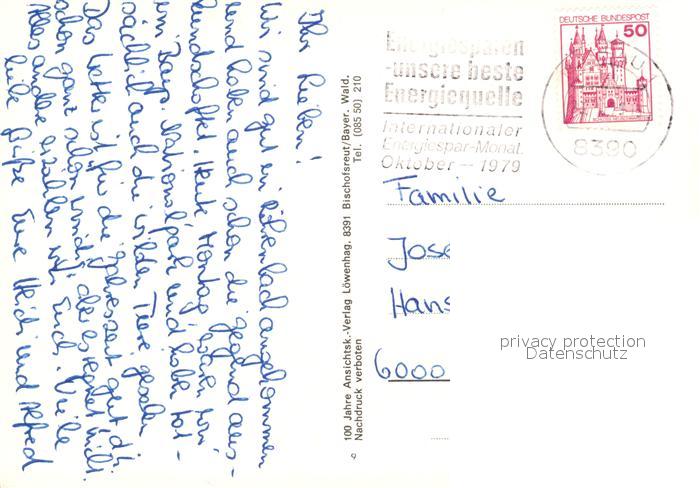 Ihr Lieben!
Wir sind gut in angekommen
und haben auch schon die Gegend aus-
kundschaftet. Heute Montag waren wir
im Bayr. Nationalpark und haben tat-
sächlich auch die wilden Tiere gesehen
Das Wetter ist für die Jahreszeit gut, d.h.
schon ganz schön windig aber es regnet nicht.
Alles andere erzählen wir Euch. Viele
liebe Grüße Eure Heidi und Alfred
100 Jahre Ansichtsk.-Verlag Löwenhag. 8391 Bischofsreut/Bayer. Wald.
Nachdruck verboten Tel. (085 50) 210
9
Energiesparen
-unsere beste
Energiequelle
Internationaler
Energiespar-Monat
Oktober - 1979
DEUTSCHE BUNDESPOST
50
8390
Familie
Jose
Hans
6000
privacy protection
Datenschutz